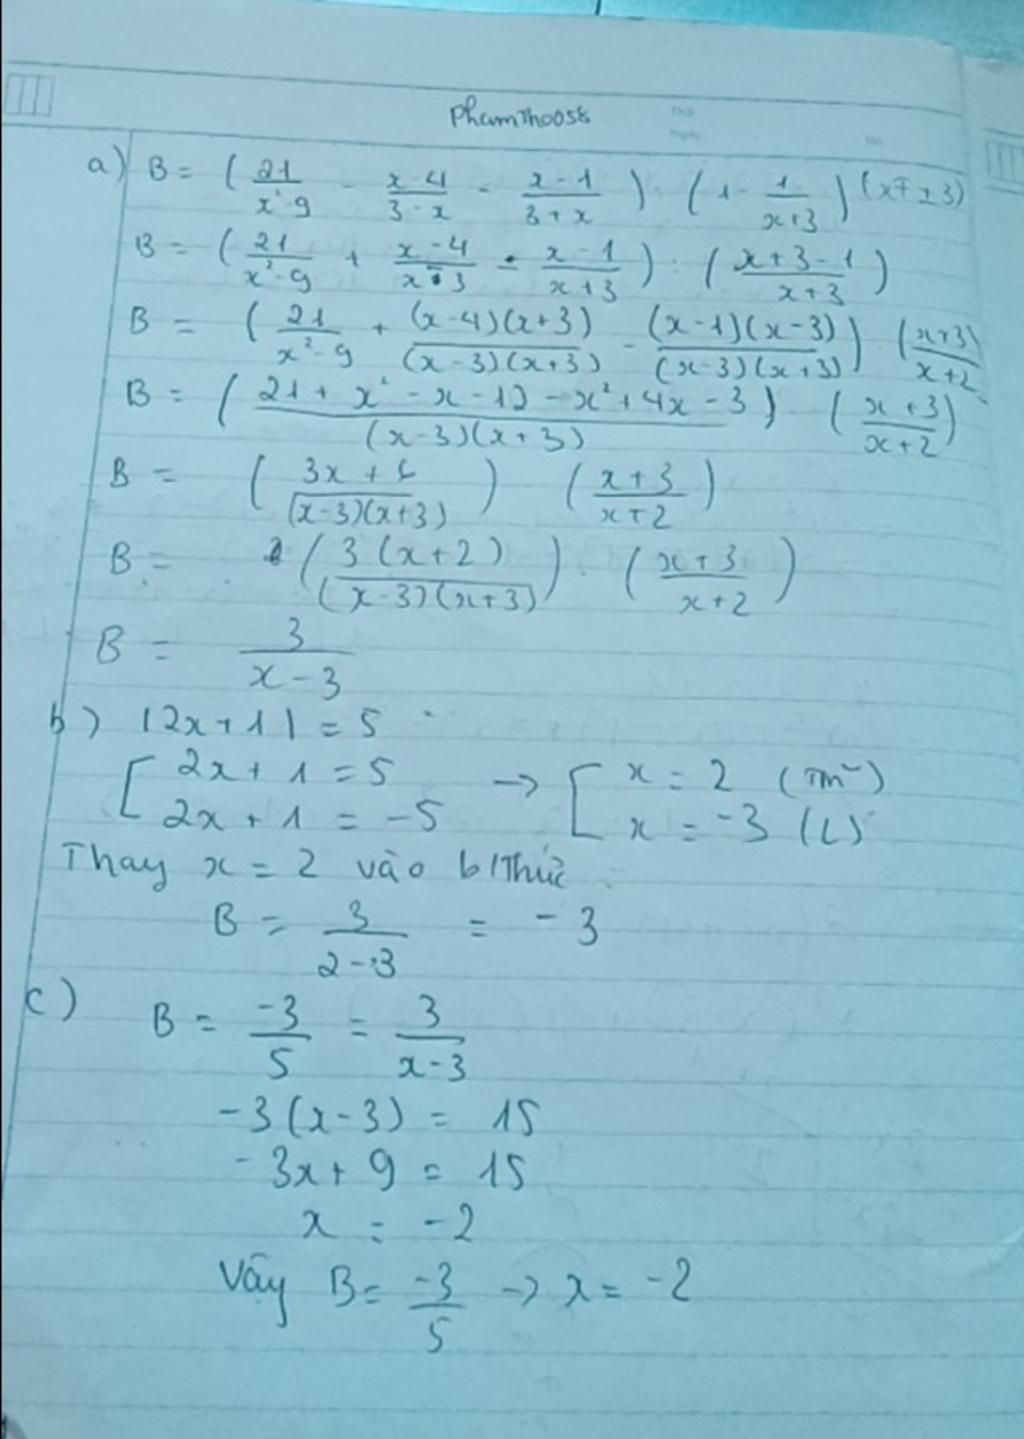 PhamThoo58
a) B = ( 21/(x²-9) - (x-4)/(3-x) - (x-1)/(3+x) ) : ( 1 - 1/(x+3) ) (x ≠ ±3)
B = ( 21/(x²-9) + (x-4)/(x-3) - (x-1)/(x+3) ) : ( (x+3-1)/(x+3) )
B = ( 21/(x²-9) + (x-4)(x+3)/((x-3)(x+3)) - (x-1)(x-3)/((x-3)(x+3)) ) · ( (x+3)/(x+2) )
B = ( (21 + x² - x - 12 - x² + 4x - 3)/((x-3)(x+3)) ) ( (x+3)/(x+2) )
B = ( (3x + 6)/((x-3)(x+3)) ) ( (x+3)/(x+2) )
B = ( 3(x+2)/((x-3)(x+3)) ) · ( (x+3)/(x+2) )
B = 3/(x-3)
b) |2x+1| = 5
[ 2x+1 = 5 → [ x = 2 (Tm)
2x+1 = -5 x = -3 (L)
Thay x = 2 vào b/Thức
B = 3/(2-3) = -3
c) B = -3/5 = 3/(x-3)
-3(x-3) = 15
-3x + 9 = 15
x = -2
Vậy B = -3/5 → x = -2